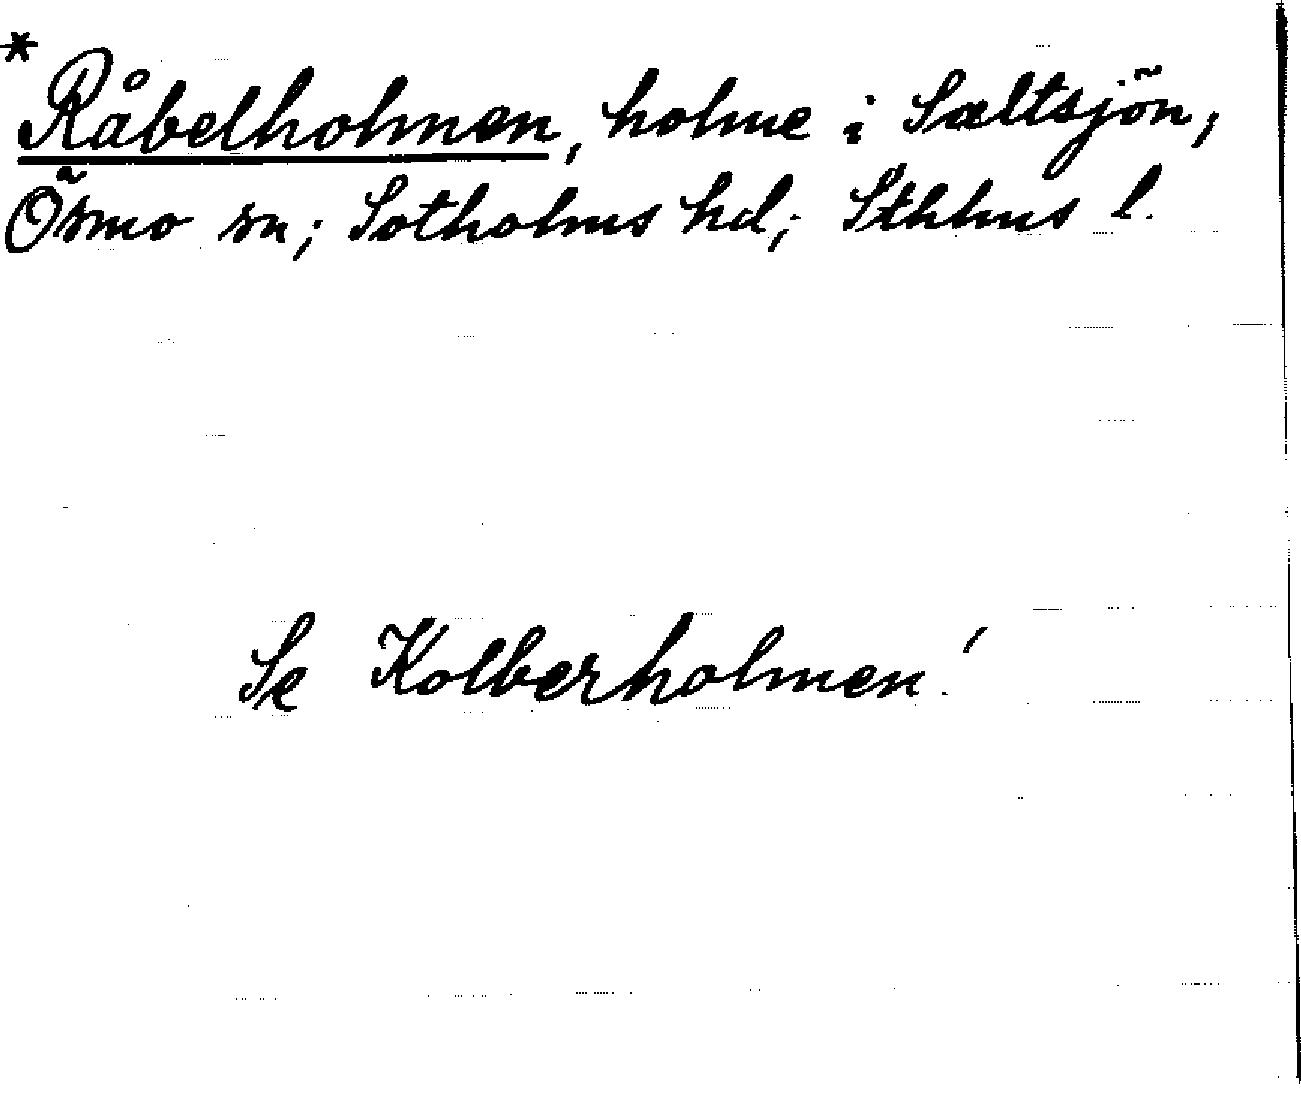 * Råbelholmen, holme i Saltsjön,
Ösmo sn; Sotholms hd; Sthlms l.
Se Kolberholmen!